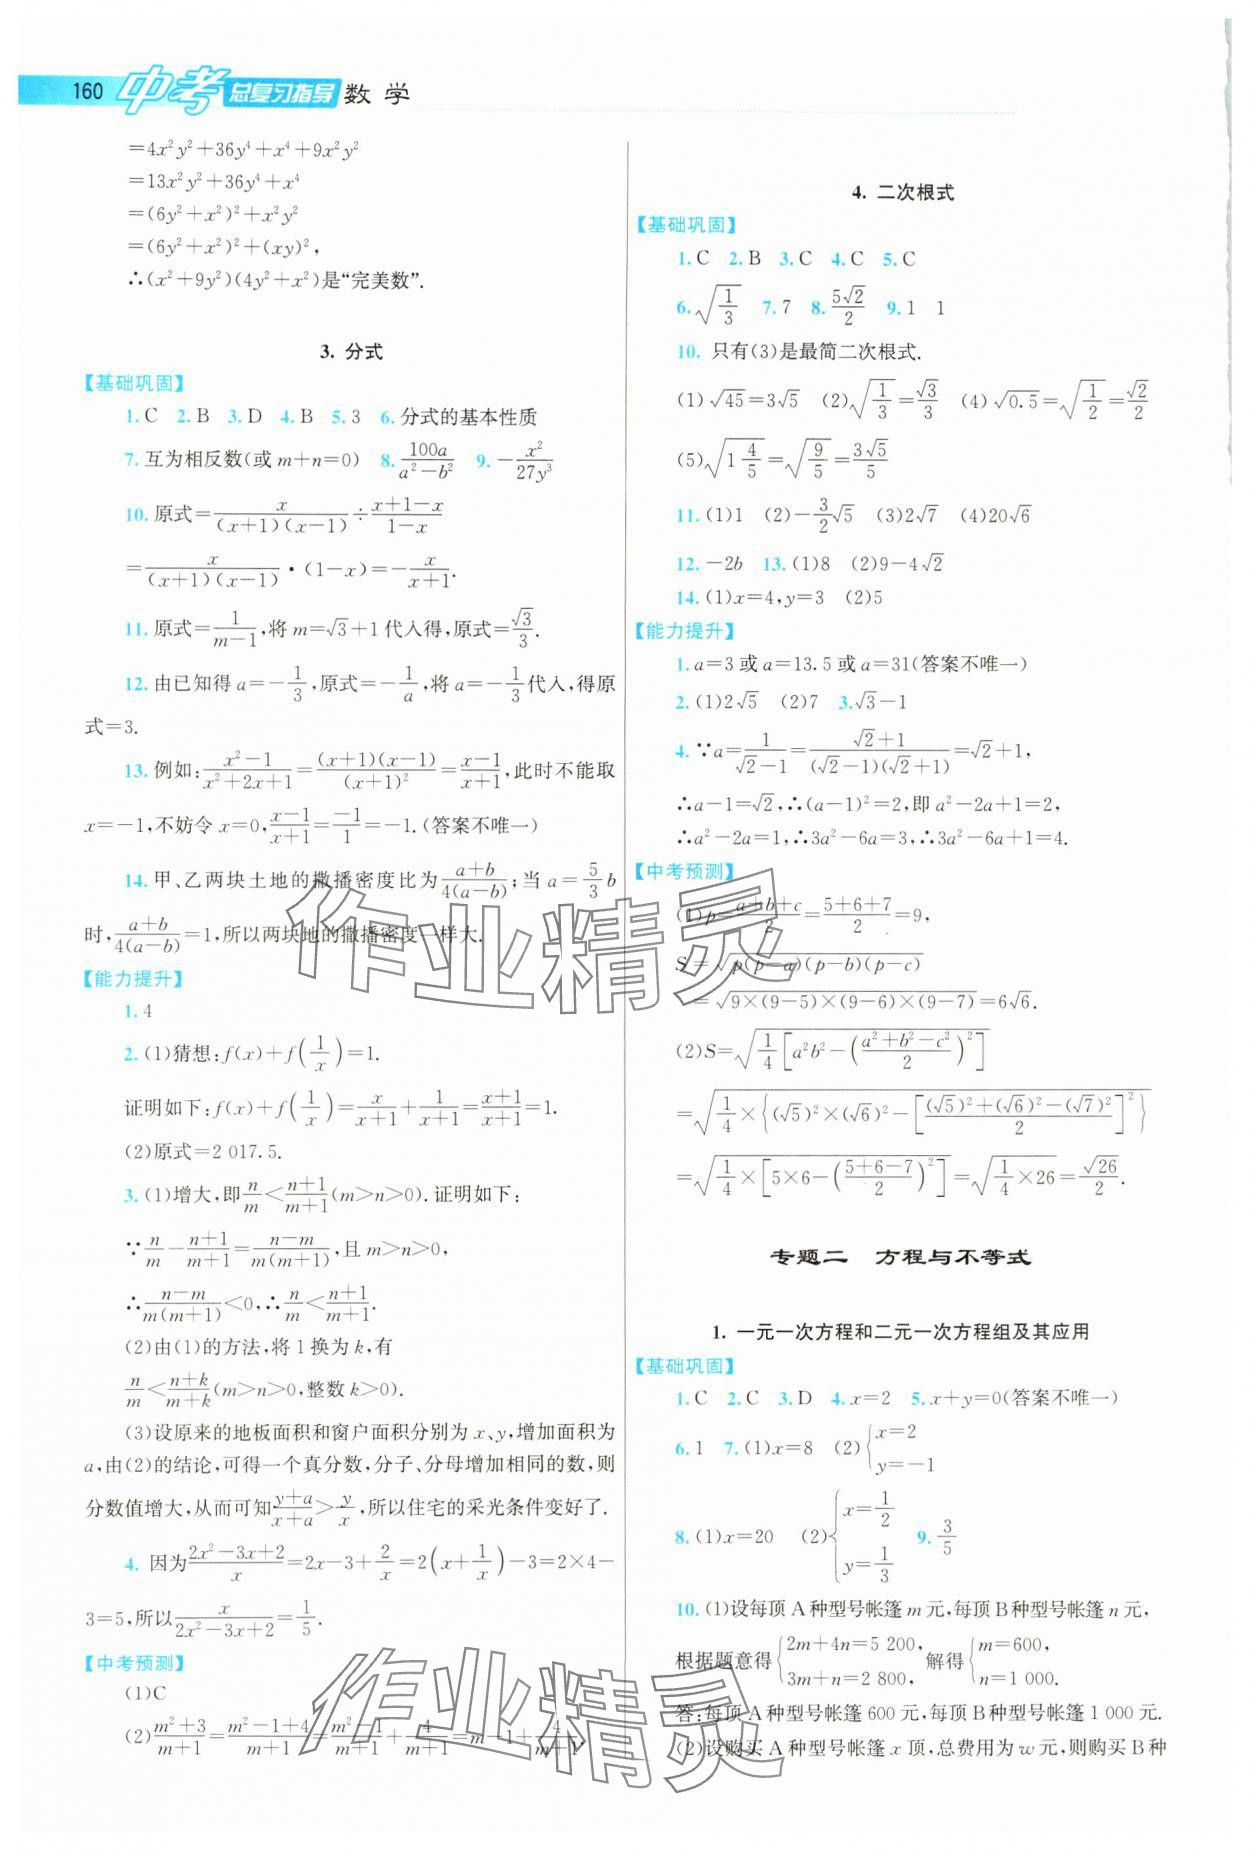 160 中考 总复习指导 数学
=4x²y²+36y⁴+x⁴+9x²y²
=13x²y²+36y⁴+x⁴
=(6y²+x²)²+x²y²
=(6y²+x²)²+(xy)²,
∴(x²+9y²)(4y²+x²)是“完美数”.
3. 分式
【基础巩固】
1. C 2. B 3. D 4. B 5. 3 6. 分式的基本性质
7. 互为相反数(或 m+n=0) 8. 100a/(a²-b²) 9. -x²/(27y³)
10. 原式=x/((x+1)(x-1))÷(x+1-x)/(1-x)
=x/((x+1)(x-1))·(1-x)=-x/(x+1).
11. 原式=1/(m-1),将 m=√3+1代入得,原式=√3/3.
12. 由已知得 a=-1/3,原式=-1/a,将 a=-1/3代入,得原
式=3.
13. 例如:(x²-1)/(x²+2x+1)=((x+1)(x-1))/(x+1)²=(x-1)/(x+1),此时不能取
x=-1,不妨令 x=0,(x-1)/(x+1)=-1/1=-1.(答案不唯一)
14. 甲、乙两块土地的撒播密度比为(a+b)/(4(a-b));当 a=5/3 b
时,(a+b)/(4(a-b))=1,所以两块地的撒播密度一样大.
【能力提升】
1. 4
2. (1)猜想:f(x)+f(1/x)=1.
证明如下:f(x)+f(1/x)=x/(x+1)+1/(x+1)=(x+1)/(x+1)=1.
(2)原式=2 017.5.
3. (1)增大,即n/m<(n+1)/(m+1)(m>n>0).证明如下:
∵n/m-(n+1)/(m+1)=(n-m)/(m(m+1)),且 m>n>0,
∴(n-m)/(m(m+1))<0,∴n/m<(n+1)/(m+1).
(2)由(1)的方法,将 1 换为 k,有
n/m<(n+k)/(m+k)(m>n>0,整数 k>0).
(3)设原来的地板面积和窗户面积分别为 x、y,增加面积为
a,由(2)的结论,可得一个真分数,分子、分母增加相同的数,则
分数值增大,从而可知(y+a)/(x+a)>y/x,所以住宅的采光条件变好了.
4. 因为(2x²-3x+2)/x=2x-3+2/x=2(x+1/x)-3=2×4-
3=5,所以x/(2x²-3x+2)=1/5.
【中考预测】
(1)C
(2)(m²+3)/(m+1)=(m²-1+4)/(m+1)=(m²-1)/(m+1)+4/(m+1)=m-1+4/(m+1).
4. 二次根式
【基础巩固】
1. C 2. B 3. C 4. C 5. C
6. √(1/3) 7. 7 8. 5√2/2 9. 1 1
10. 只有(3)是最简二次根式.
(1)√45=3√5 (2)√(1/3)=√3/3 (4)√0.5=√(1/2)=√2/2
(5)√(1 4/5)=√(9/5)=3√5/5
11. (1)1 (2)-3/2√5 (3)2√7 (4)20√6
12. -2b 13. (1)8 (2)9-4√2
14. (1)x=4,y=3 (2)5
【能力提升】
1. a=3 或 a=13.5 或 a=31(答案不唯一)
2. (1)2√5 (2)7 3. √3-1
4. ∵a=1/(√2-1)=(√2+1)/((√2-1)(√2+1))=√2+1,
∴a-1=√2,∴(a-1)²=2,即 a²-2a+1=2,
∴a²-2a=1,∴3a²-6a=3,∴3a²-6a+1=4.
【中考预测】
(1)p=(a+b+c)/2=(5+6+7)/2=9,
S=√(p(p-a)(p-b)(p-c))
=√(9×(9-5)×(9-6)×(9-7))=6√6.
(2)S=√(1/4[a²b²-((a²+b²-c²)/2)²])
=√(1/4×{(√5)²×(√6)²-[((√5)²+(√6)²-(√7)²)/2]²})
=√(1/4×[5×6-((5+6-7)/2)²])=√(1/4×26)=√26/2.
专题二 方程与不等式
1. 一元一次方程和二元一次方程组及其应用
【基础巩固】
1. C 2. C 3. D 4. x=2 5. x+y=0(答案不唯一)
6. 1 7. (1)x=8 (2){x=2 y=-1
8. (1)x=20 (2){x=1/2 y=1/3 9. 3/5
10. (1)设每顶 A 种型号帐篷 m 元,每顶 B 种型号帐篷 n 元,
根据题意得{2m+4n=5 200, 3m+n=2 800, 解得{m=600, n=1 000.
答:每顶 A 种型号帐篷 600 元,每顶 B 种型号帐篷 1 000 元.
(2)设购买 A 种型号帐篷 x 顶,总费用为 w 元,则购买 B 种
作业精灵
作业精灵